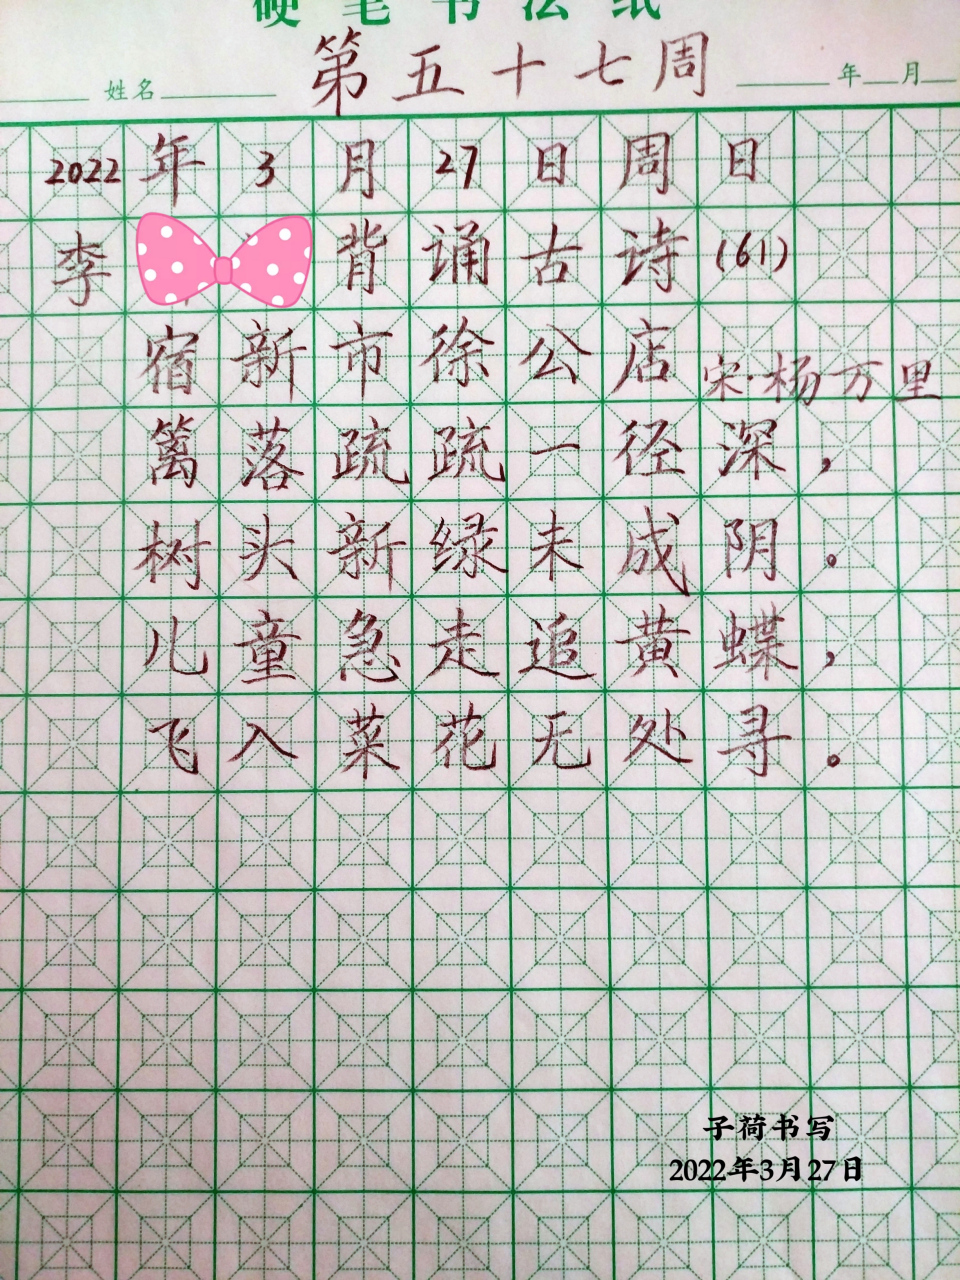 硬笔书法纸
第五十七周
姓名 年 月
2022年3月27日周日
李 背诵古诗(61)
宿新市徐公店 宋·杨万里
篱落疏疏一径深，
树头新绿未成阴。
儿童急走追黄蝶，
飞入菜花无处寻。
子荷书写
2022年3月27日